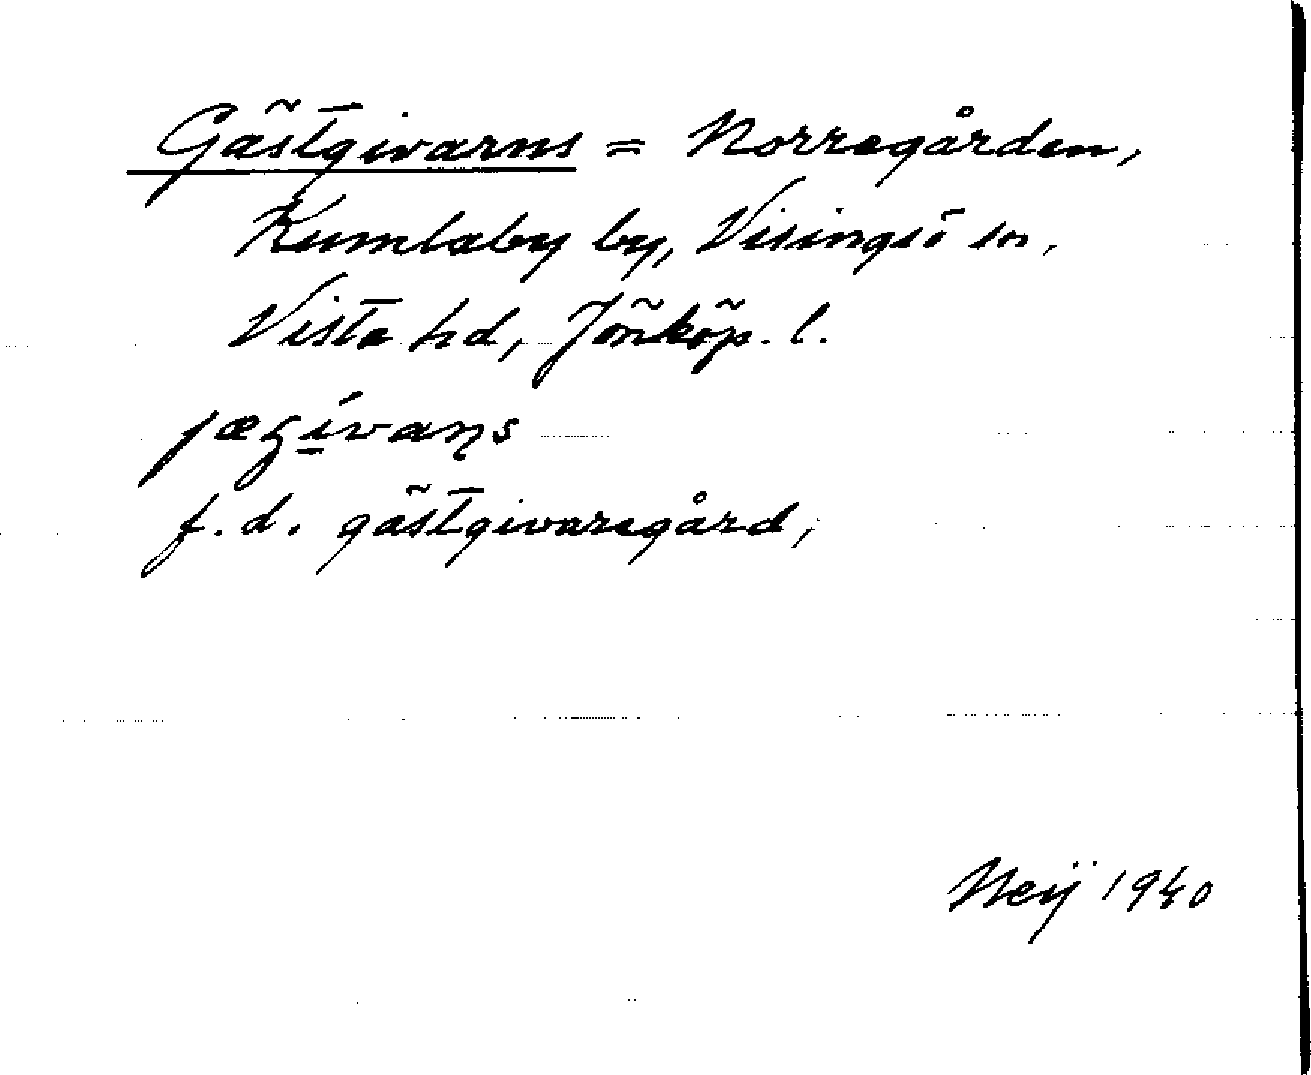 Gästgivarns = Norregården,
Kumlaby by, Visingsö sn,
Vista hd, Jönköp. l.
f. d. gästgivaregård,
Neij 1940